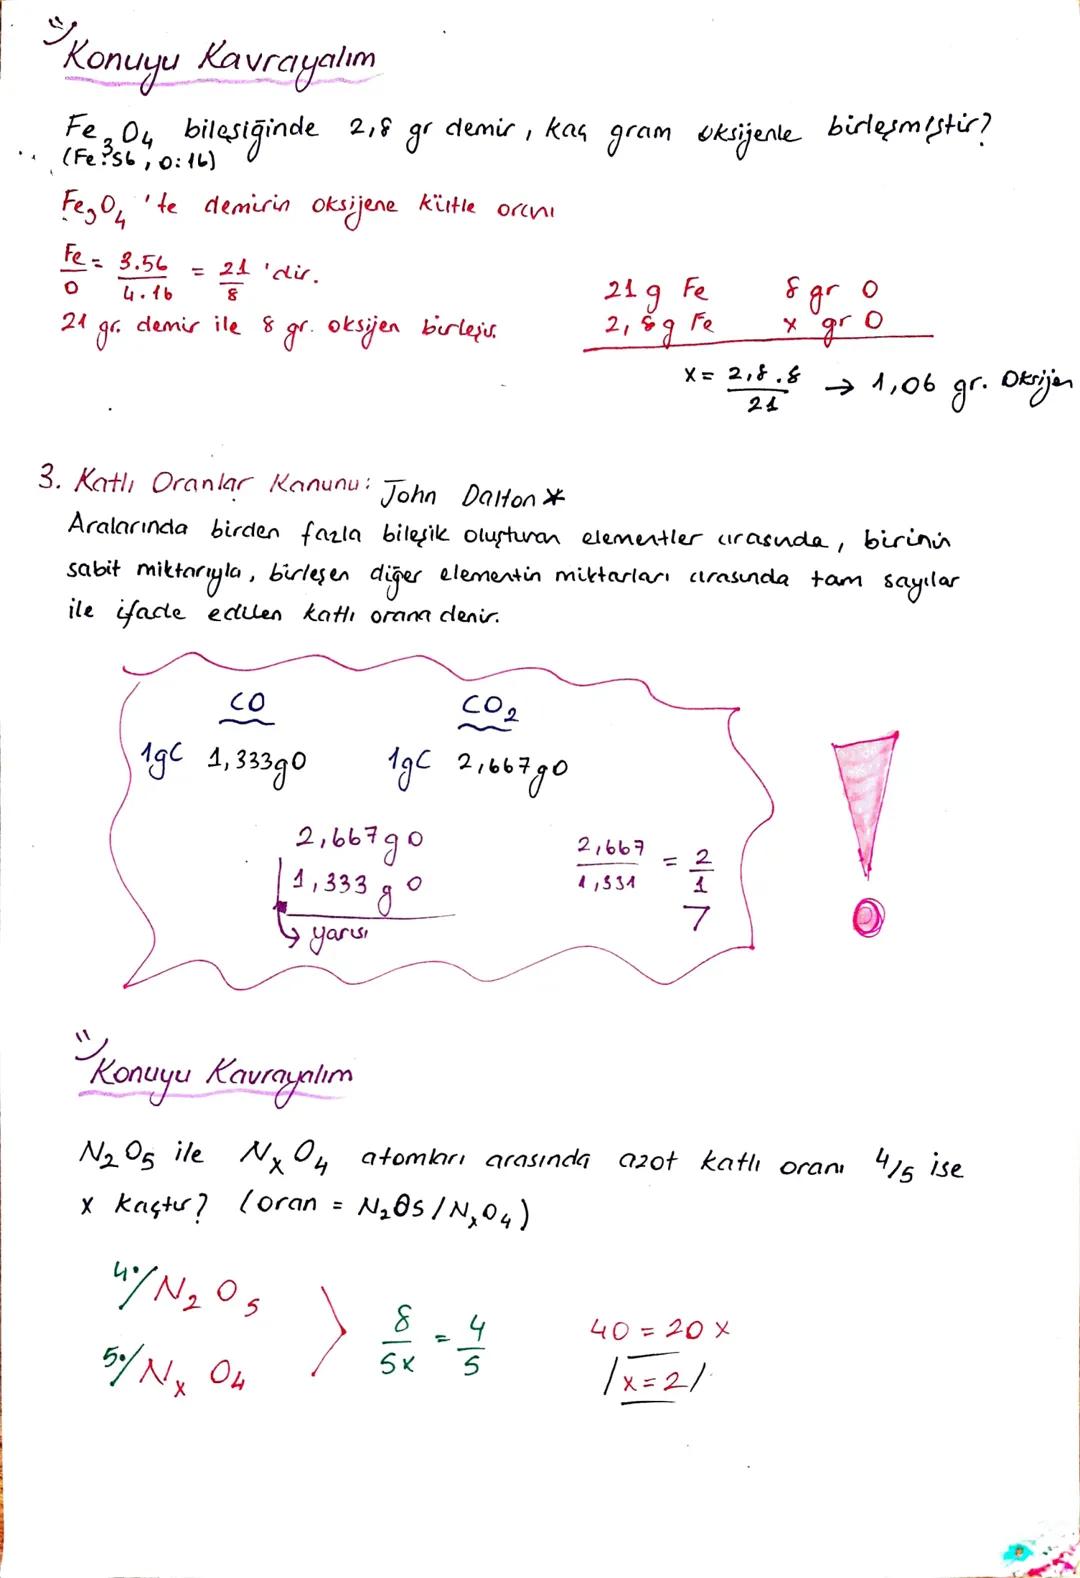 Konuyu Kavrayalım
Fe3O4 bileşiğinde 2,8 gr demir, kaç gram oksijenle birleşmiştir?
(Fe:56, O:16)
Fe3O4 'te demirin oksijene kütle oranı
Fe/O = 3.56/4.16 = 21/8 'dir.
21 gr. demir ile 8 gr. oksijen birleşir.
21g Fe 8 gr O
2,8g Fe x gr O
x = 2,8.8/21 → 1,06 gr. Oksijen
3. Katlı Oranlar Kanunu: John Dalton *
Aralarında birden fazla bileşik oluşturan elementler arasında, birinin
sabit miktarıyla, birleşen diğer elementin miktarları arasında tam sayılar
ile ifade edilen katlı orana denir.
CO CO2
1gC 1,333gO 1gC 2,667gO
2,667gO
1,333 g O
↳ yarısı
2,667/1,331 = 2/1
Konuyu Kavrayalım
N2O5 ile NxO4 atomları arasında azot katlı oranı 4/5 ise
x kaçtır? (oran = N2O5/NxO4)
4/N2O5
5/NxO4
8/5x = 4/5
40 = 20x
/x=2/